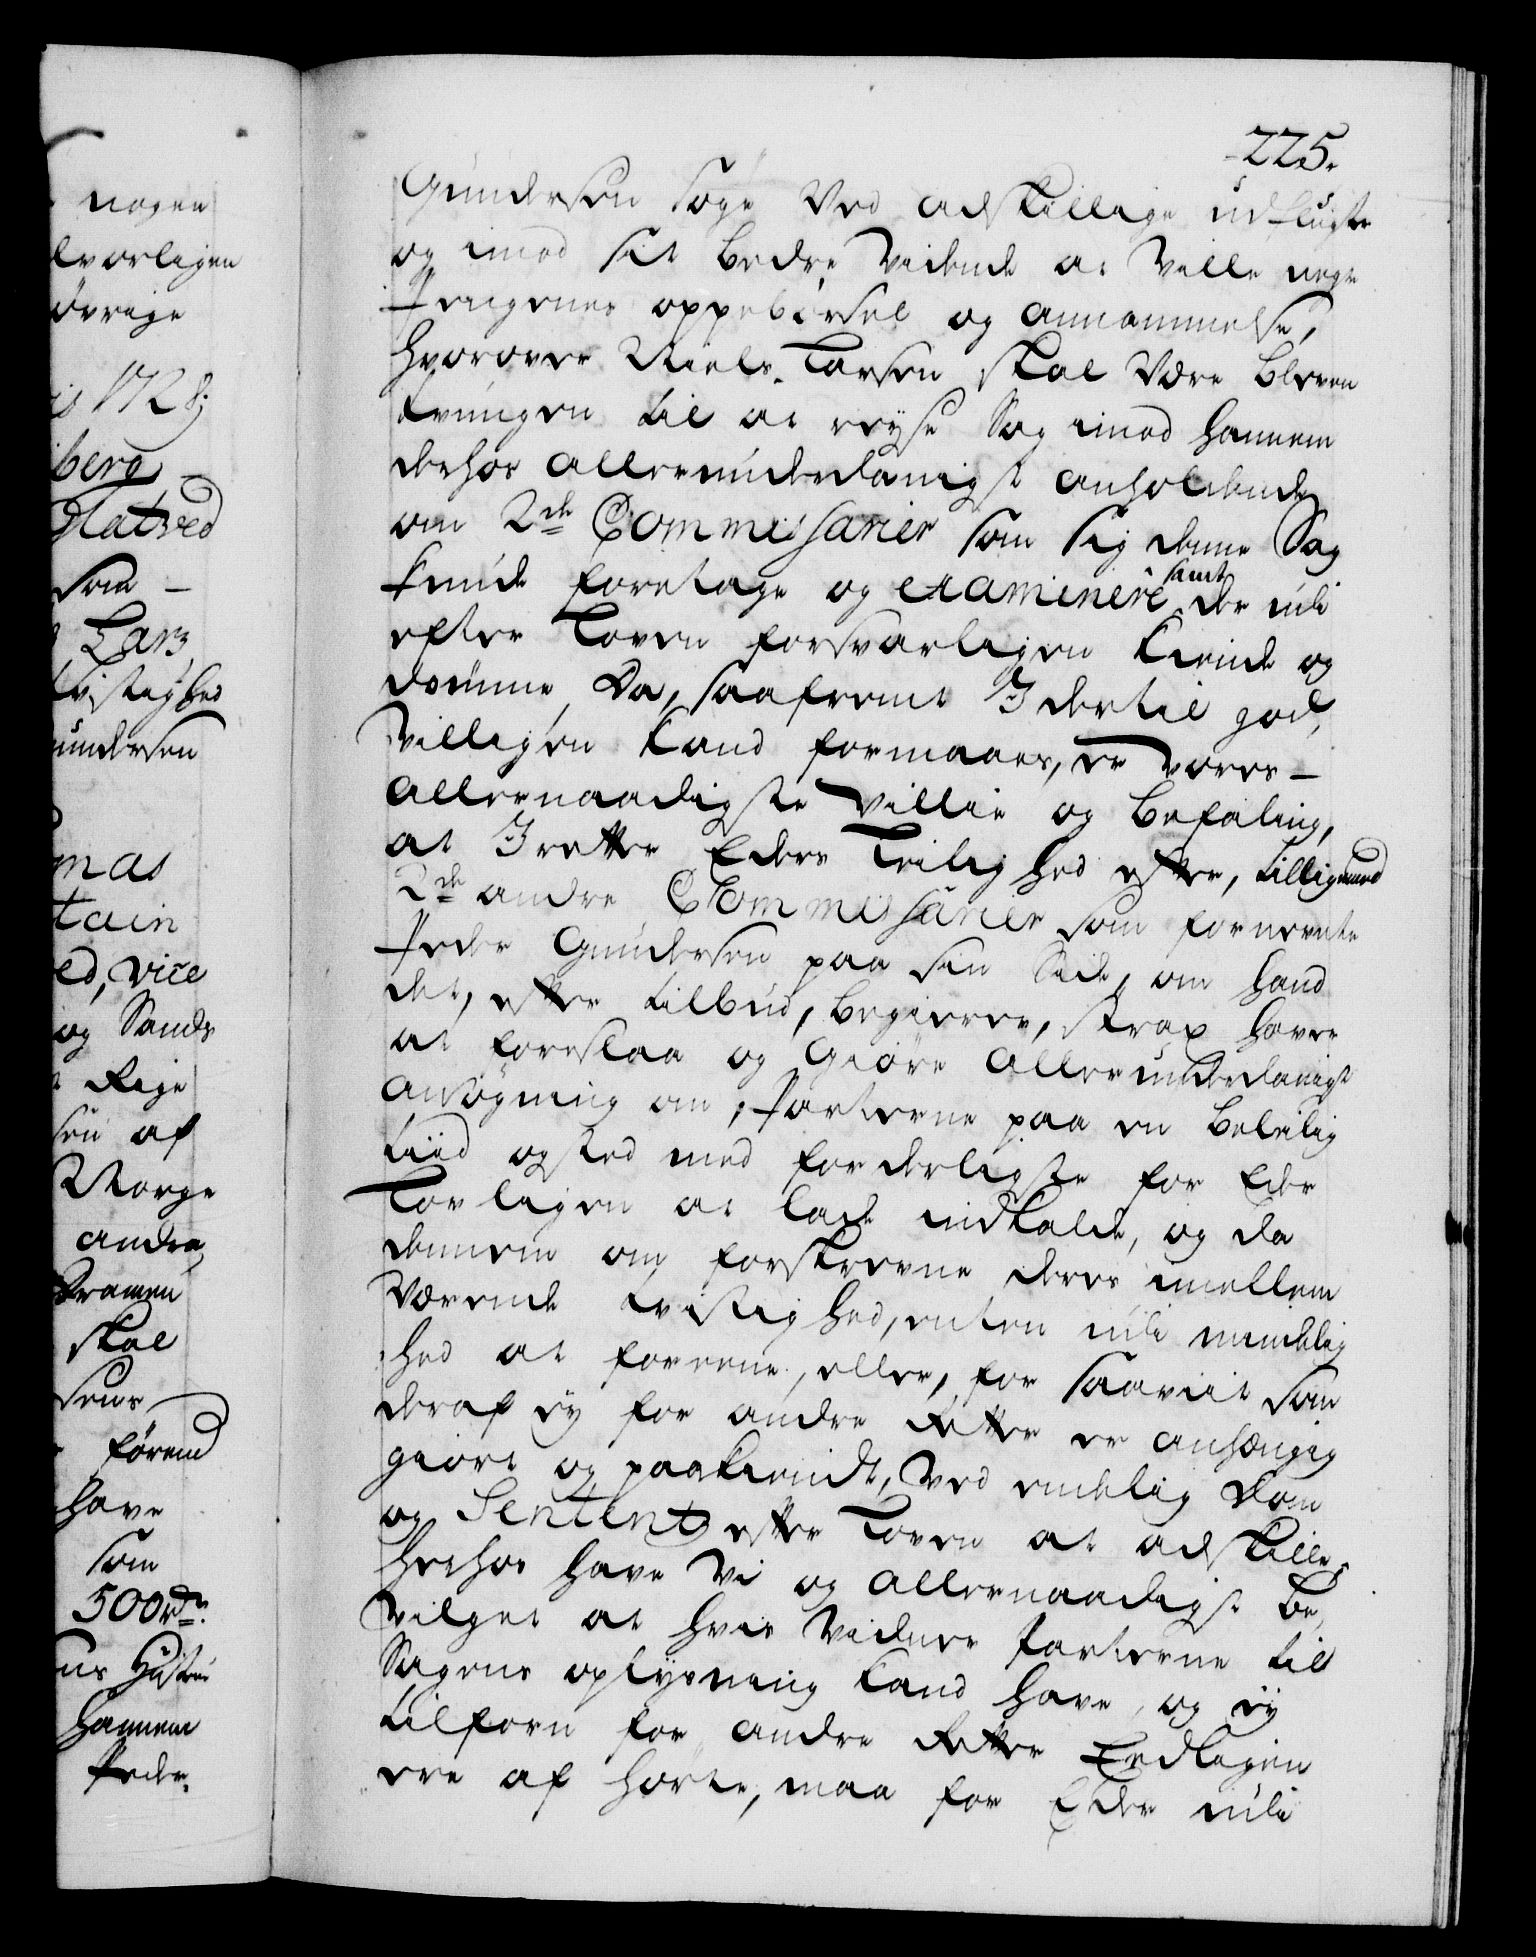 225.
Gundersen søge ved adskillige udflugter
og imod sit bedre vidende at ville negte
Pengenes oppebørsel og annammelse,
hvorover Niels Larsen skal være bleven
tvungen til at reyse Sag imod hannem
derhos allerunderdanigst anholdende
om 2de Commissarier som sig denne Sag
kunde foretage og examinere samt der udi
efter Loven forsvarligen kiende og
dømme, Da, saafremt I dertil god,
villigen kand formaaes, er vores
allernaadigste villie og befaling,
at I retter Eders Leilighed efter, tilligemed
2de andre Commissarier som fornevnte
Peder Gundersen paa sin Side, om hand
det, efter tilbud, begierer, strax haver
at foreslaa og giøre allerunderdanigst
ansøgning om; Parterne paa en beleilig
tiid og sted med forderligste for Eder
Lovligen at lade indkalde, og da
dennem om forskrevne deres imellem
værende tvistighed, enten udi mindelig
hed at foreene, eller, for saaviit som
deraf ey for andre Retter er anhængig
giort og paakiendt, ved endelig dom
og Sentents efter Loven at adskille.
herhos have Vi og allernaadigst be,
vilget at hvis videre Parterne til
Sagens oplysning kand have, og ey
tilforn for andre Retter Eedlagen
ere af hørte, maa for Eder udi
nogen
lvorligen
øvrige
is 1728;
berg
Flatved
som
Lars
tvistighed
undersen
mas
tain
ed, vice
og Sands
Rige
sen af
Norge
andra,
Dramen
skal
sens
førend
have
som
500 rdr.
us Hustru
hannem
Peder